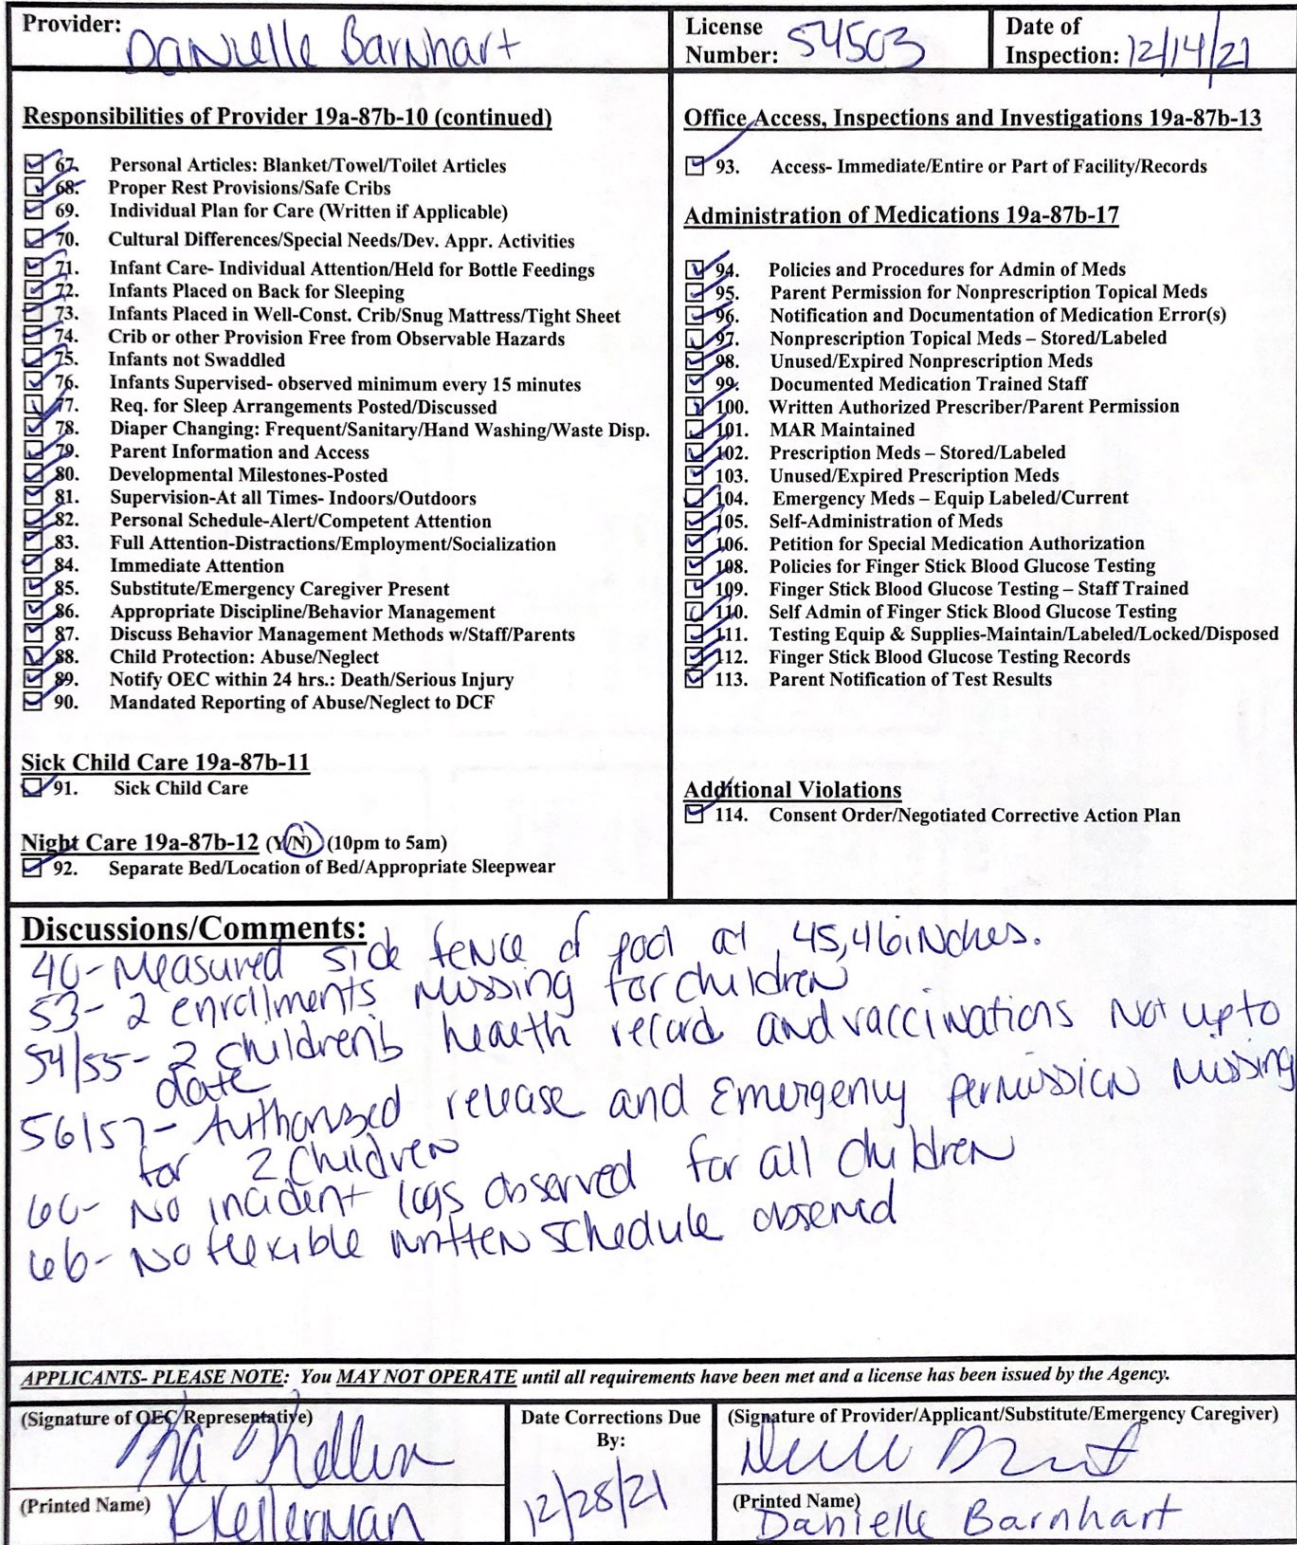 Provider: Danielle Barnhart
License Number: 54503
Date of Inspection: 12/14/21
Responsibilities of Provider 19a-87b-10 (continued)
67. Personal Articles: Blanket/Towel/Toilet Articles
68. Proper Rest Provisions/Safe Cribs
69. Individual Plan for Care (Written if Applicable)
70. Cultural Differences/Special Needs/Dev. Appr. Activities
71. Infant Care- Individual Attention/Held for Bottle Feedings
72. Infants Placed on Back for Sleeping
73. Infants Placed in Well-Const. Crib/Snug Mattress/Tight Sheet
74. Crib or other Provision Free from Observable Hazards
75. Infants not Swaddled
76. Infants Supervised- observed minimum every 15 minutes
77. Req. for Sleep Arrangements Posted/Discussed
78. Diaper Changing: Frequent/Sanitary/Hand Washing/Waste Disp.
79. Parent Information and Access
80. Developmental Milestones-Posted
81. Supervision-At all Times- Indoors/Outdoors
82. Personal Schedule-Alert/Competent Attention
83. Full Attention-Distractions/Employment/Socialization
84. Immediate Attention
85. Substitute/Emergency Caregiver Present
86. Appropriate Discipline/Behavior Management
87. Discuss Behavior Management Methods w/Staff/Parents
88. Child Protection: Abuse/Neglect
89. Notify OEC within 24 hrs.: Death/Serious Injury
90. Mandated Reporting of Abuse/Neglect to DCF
Sick Child Care 19a-87b-11
91. Sick Child Care
Night Care 19a-87b-12 (Y/N) (10pm to 5am)
92. Separate Bed/Location of Bed/Appropriate Sleepwear
Office Access, Inspections and Investigations 19a-87b-13
93. Access- Immediate/Entire or Part of Facility/Records
Administration of Medications 19a-87b-17
94. Policies and Procedures for Admin of Meds
95. Parent Permission for Nonprescription Topical Meds
96. Notification and Documentation of Medication Error(s)
97. Nonprescription Topical Meds – Stored/Labeled
98. Unused/Expired Nonprescription Meds
99. Documented Medication Trained Staff
100. Written Authorized Prescriber/Parent Permission
101. MAR Maintained
102. Prescription Meds – Stored/Labeled
103. Unused/Expired Prescription Meds
104. Emergency Meds – Equip Labeled/Current
105. Self-Administration of Meds
106. Petition for Special Medication Authorization
108. Policies for Finger Stick Blood Glucose Testing
109. Finger Stick Blood Glucose Testing – Staff Trained
110. Self Admin of Finger Stick Blood Glucose Testing
111. Testing Equip & Supplies-Maintain/Labeled/Locked/Disposed
112. Finger Stick Blood Glucose Testing Records
113. Parent Notification of Test Results
Additional Violations
114. Consent Order/Negotiated Corrective Action Plan
Discussions/Comments:
40- Measured side fence of pool at 45,46 inches.
53- 2 enrollments missing for children
54/55- 2 children's health record and vaccinations not up to
date
56/57- Authorized release and Emergency permission missing
for 2 children
60- No incident logs observed for all children
66- No flexible written schedule observed
APPLICANTS- PLEASE NOTE: You MAY NOT OPERATE until all requirements have been met and a license has been issued by the Agency.
(Signature of OEC Representative)
(Printed Name) K Kellerman
Date Corrections Due
By:
12/28/21
(Signature of Provider/Applicant/Substitute/Emergency Caregiver)
(Printed Name) Danielle Barnhart